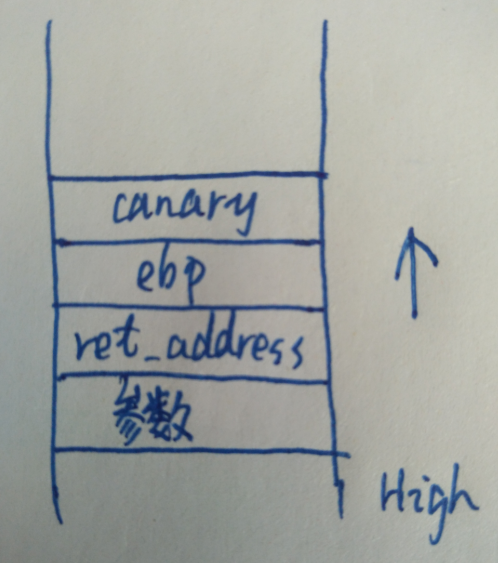 canary
ebp
ret_address
参数
High